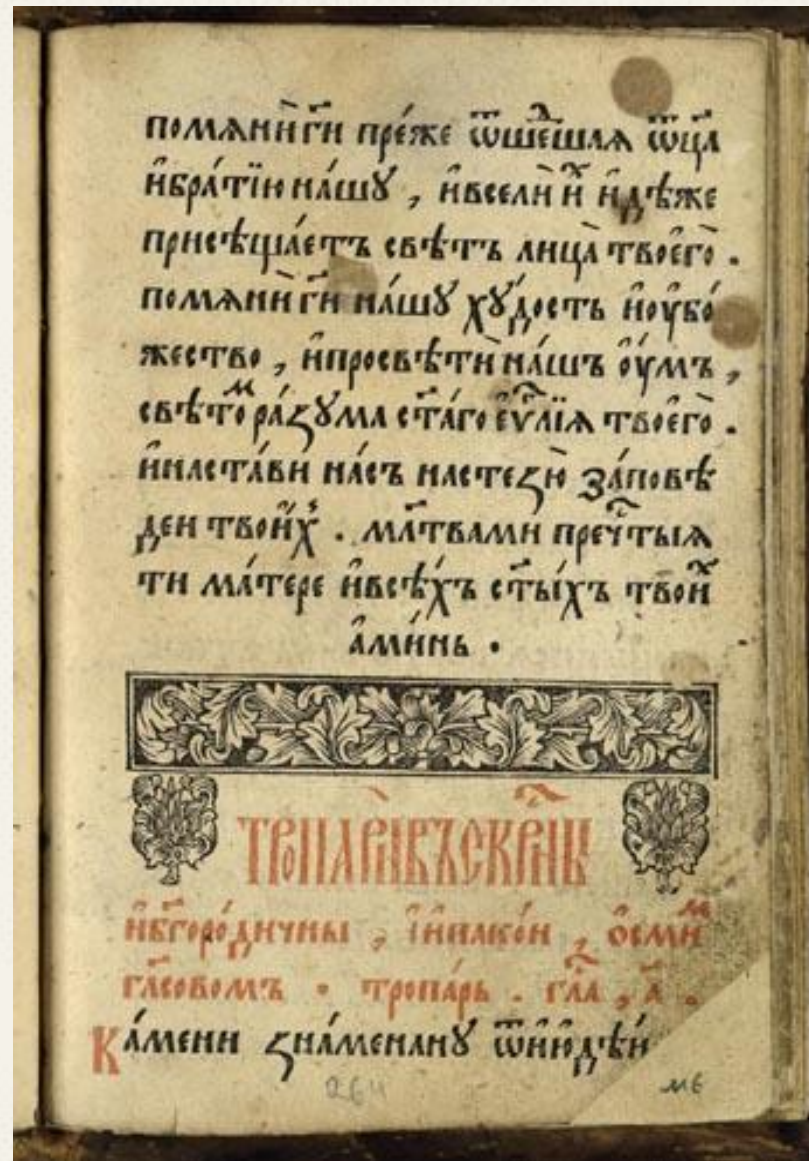 помѧнѝ гⷭ҇и пре́же ѿше́шаѧ ѿц҃а
и҆бра́тїю на́шꙋ , и҆вселѝ и҆̀ и҆дѣ́же
присѣща́етъ свѣ́тъ лица̀ твоегѡ̀ .
помѧнѝ гⷭ҇и на́шꙋ хꙋ́дость и҆оу҆бо́
жество , и҆просвѣтѝ на́шъ оу҆́мъ ,
свѣ́тоⷨ ра́зꙋма ст҃а́го є҆ѵⷢ҇лїѧ твоего̀ .
и҆наста́ви на́съ настезю̀ за́повѣ
деи твои́хъ . мл҃твами преч҇тыѧ
ти ма́тере и҆всѣ́хъ ст҃ы́хъ твоиⷯ
а҆ми́нь .
тропарѝвъскрⷭ҇ны
и҆бг҃оро́дичны , і҆ѝпакои , о҆смиⷨ
гла́совомъ . тропа́рь . гла́ , а҃ .
Ка́мени зна́менанꙋ ѿи҆ю҆дѣ́и
264
м6